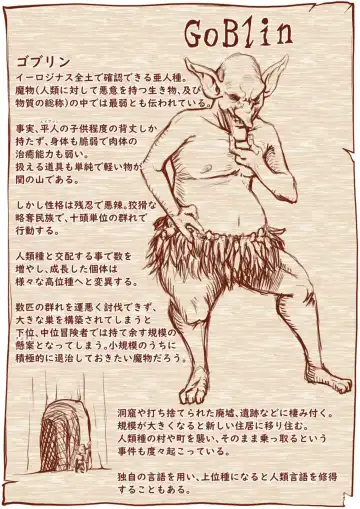 GoBlin
ゴブリン
イーロジナス全土で確認できる亜人種。
魔物(人類に対して悪意を持つ生き物、及び
物質の総称)の中では最弱とも伝わられている。
事実、平人の子供程度の背丈しか
持たず、身体も脆弱で肉体の
治癒能力も弱い。
扱える道具も単純で軽い物が
関の山である。
しかし性格は残忍で悪辣。狡猾な
略奪民族で、十頭単位の群れで
行動する。
人類種と交配する事で数を
増やし、成長した個体は
様々な高位種へと変異する。
数匹の群れを運悪く討伐できず、
大きな巣を構築されてしまうと
下位、中位冒険者では持て余す規模の
懸案となってしまう。小規模のうちに
積極的に退治しておきたい魔物だろう。
洞窟や打ち捨てられた廃墟、遺跡などに棲み付く。
規模が大きくなると新しい住居に移り住む。
人類種の村や町を襲い、そのまま乗っ取るという
事件も度々起こっている。
独自の言語を用い、上位種になると人類言語を修得
することもある。